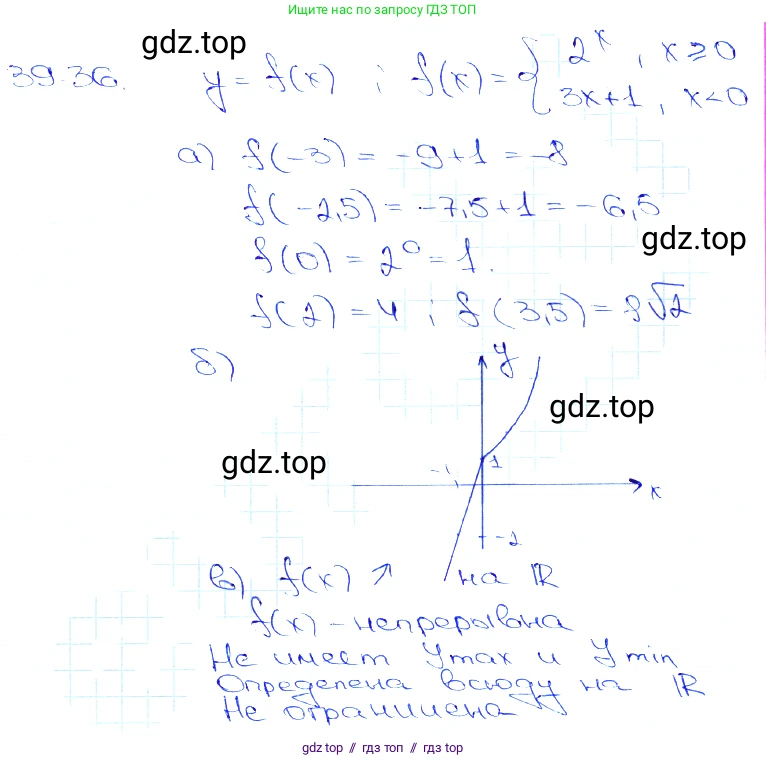 Ищите нас по запросу ГДЗ ТОП
gdz.top
39.36. y = f(x) ; f(x) = { 2^x , x ≥ 0
3x+1 , x < 0
а) f(-3) = -9+1 = -8
f(-2,5) = -7,5+1 = -6,5
gdz.top
f(0) = 2^0 = 1.
f(2) = 4 ; f(3,5) = 8√2
б)
y
gdz.top
gdz.top
-1 1
x
-2
в) f(x) ↗ на ℝ
f(x) - непрерывна
Не имеет y max и y min
Определена всюду на ℝ
Не ограничена
gdz.top // гдз топ // гдз top